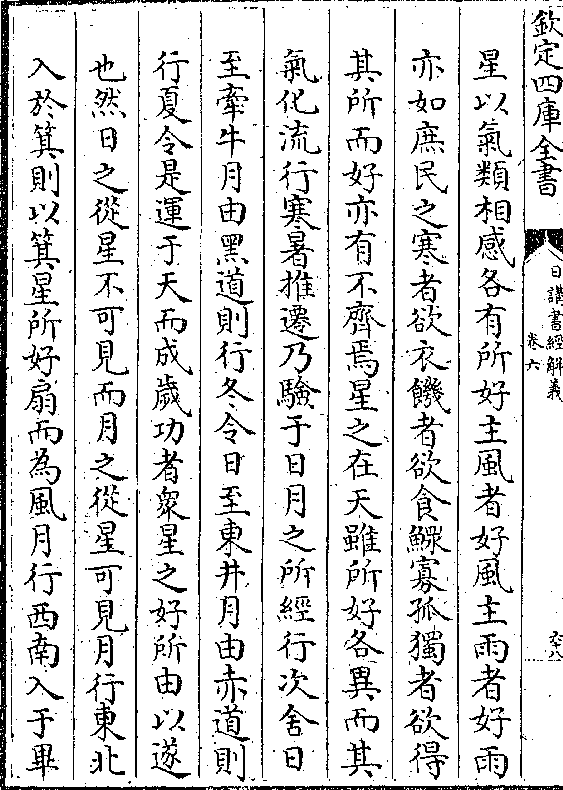 欽定四庫全書
日講書經解義
卷六
六十八
星以氣類相感各有所好主風者好風主雨者好雨
亦如庶民之寒者欲衣饑者欲食鰥寡孤獨者欲得
其所而好亦有不齊焉星之在天雖所好各異而其
氣化流行寒暑推遷乃驗于日月之所經行次舍日
至牽牛月由黑道則行冬令日至東井月由赤道則
行夏令是運于天而成歲功者衆星之好所由以遂
也然日之從星不可見而月之從星可見月行東北
入於箕則以箕星所好扇而為風月行西南入于畢